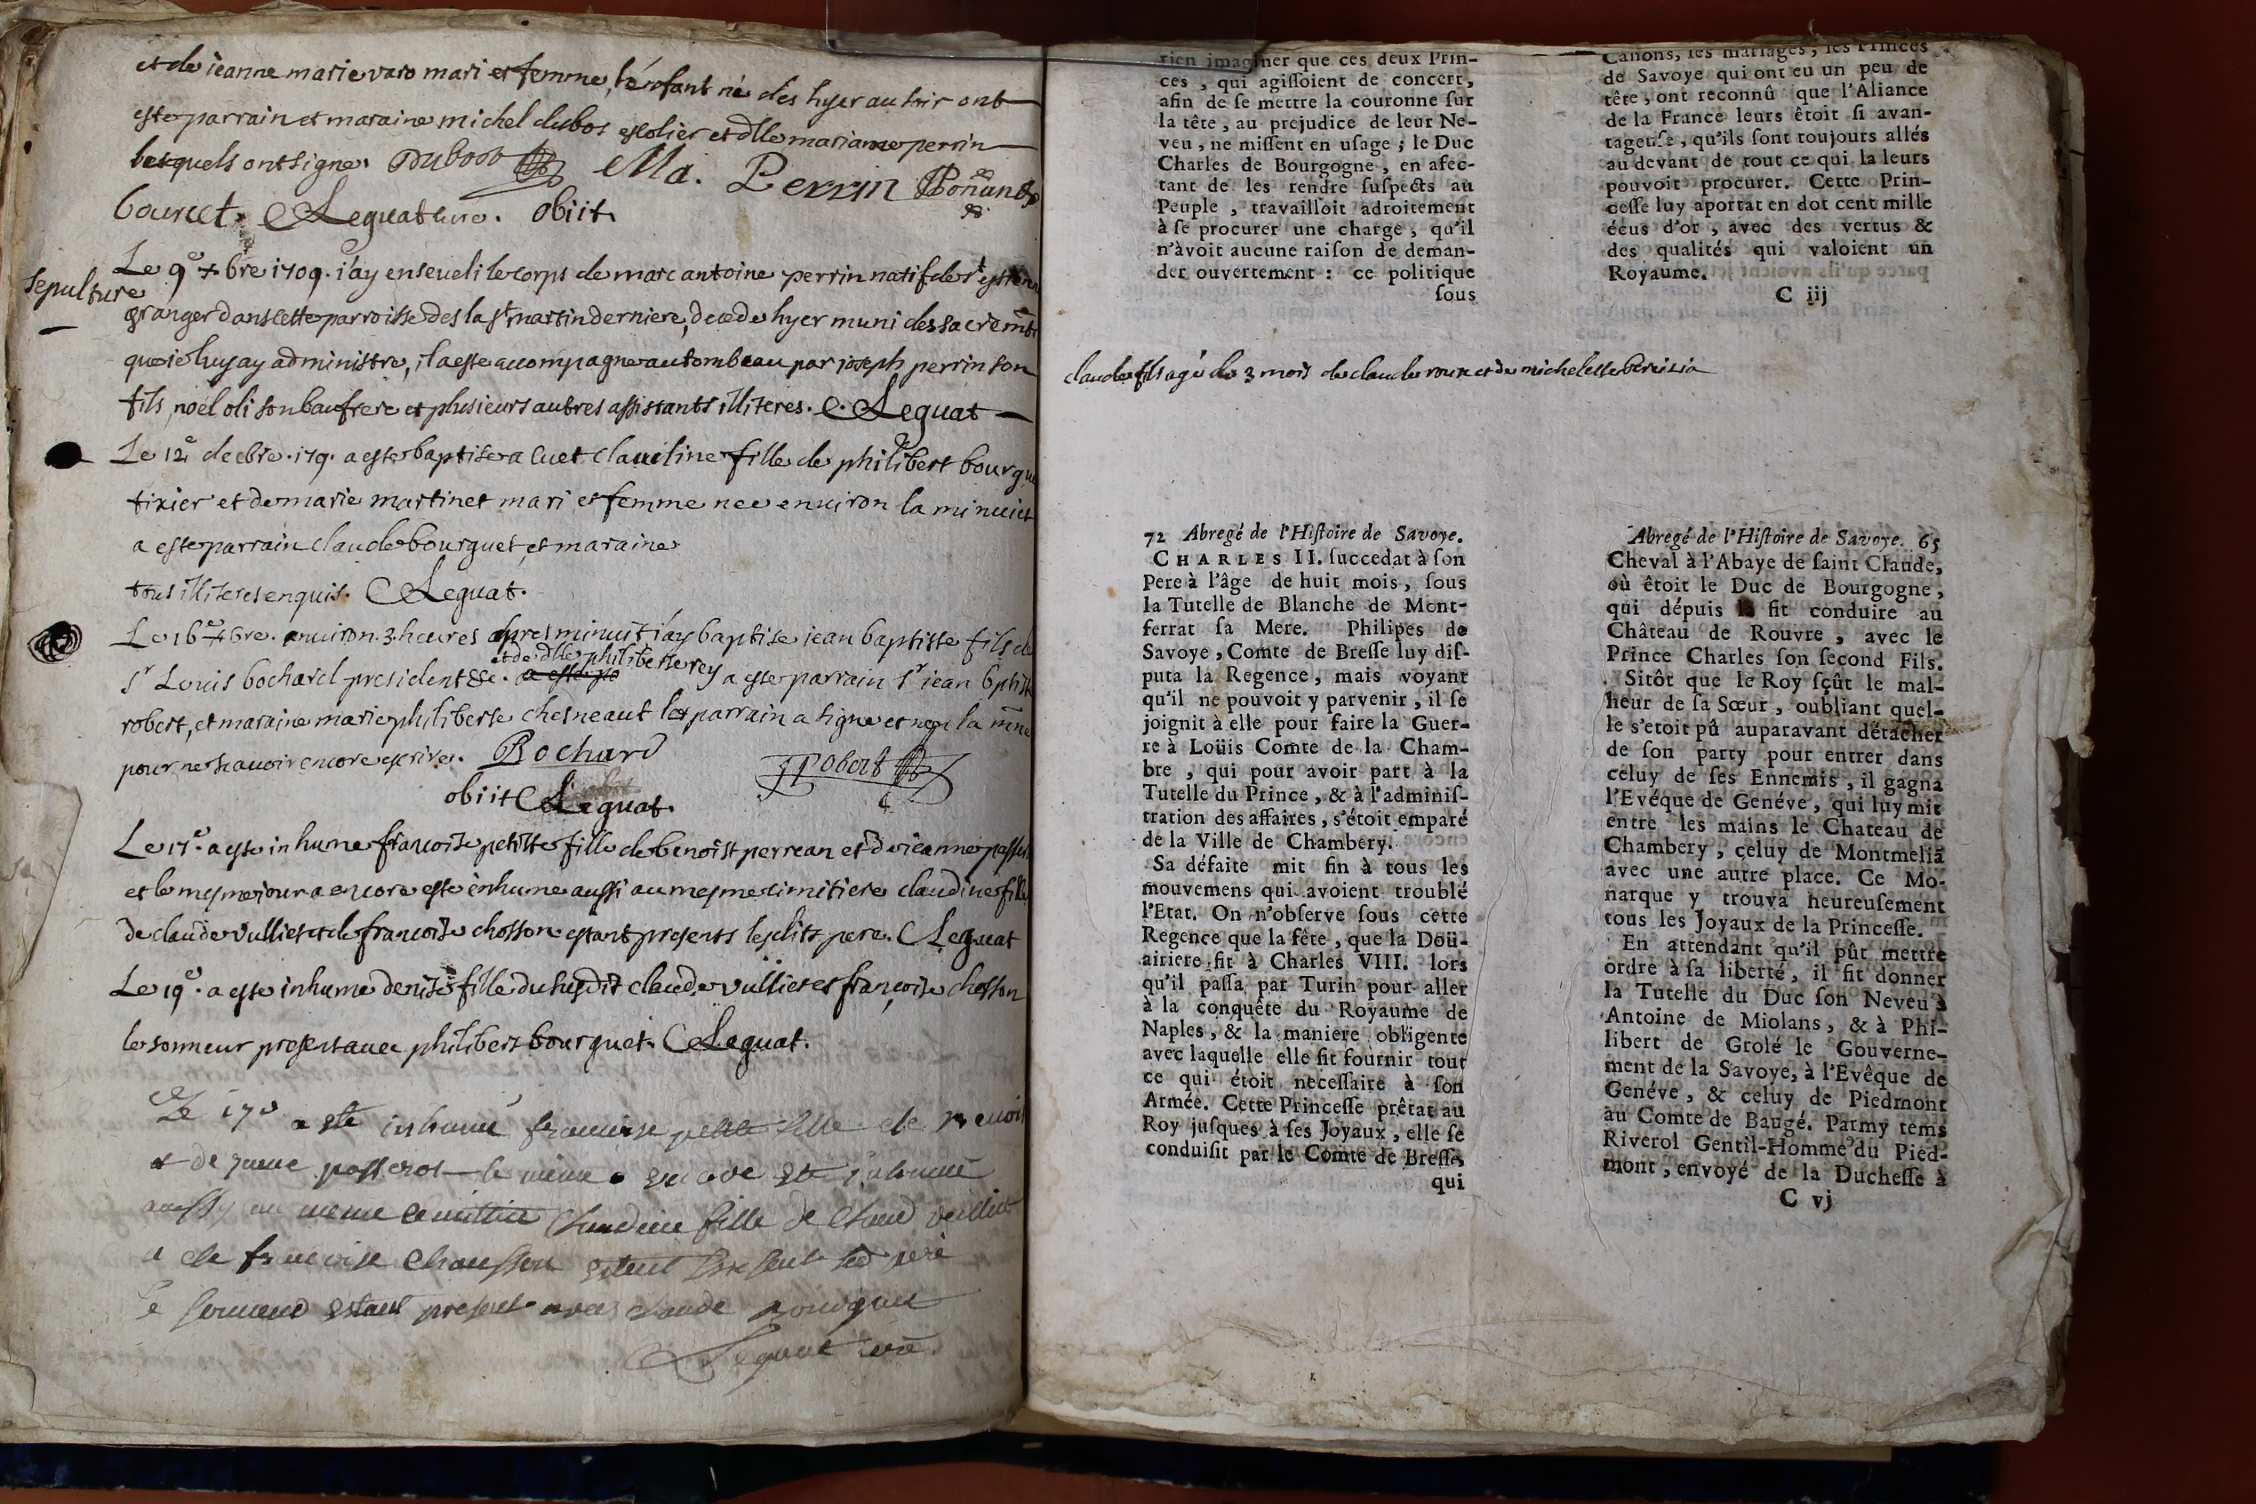 et de jeanne marie varo mari et femme, l'enfant né des hyer au soir ont
esté parrain et maraine michel dubos escolier et dlle mariane perrin
lesquels ont signe. Dubost Ma. Perrin
bourcet. Leguat cure. obiit
Sepulture
Le 9e xbre 1709. j'ay enseveli le corps de marc antoine perrin natif de st
granger dans cette parroisse des la st martin derniere, decede hyer muni des sacremts
que je luy ay administre, il a este accompagne au tombeau par joseph perrin son
fils, noel oli son baufrere et plusieurs autres assistants illiteres. C. Leguat
Le 12e decbre. 179. a este baptisee a Cuet claudine fille de philibert bourgu
tixier et de marie martinet mari et femme nee environ la minuict
a este parrain claude bourguet, et maraine
tous illiteres enquis. C Leguat.
Le 16e xbre. environ 3 heures apres minuit j'ay baptise jean baptiste fils de
et de dlle philiberte rey
sr Louis bochard president &c. a este parrain sr jean bptiste
robert, et maraine marie philiberte chesneaut le parrain a signe et non la mne
pour ne scavoir encore escrire. Bochard JRobert
obiit C Leguat.
Le 17e. a este inhume francoise petitte fille de benoist perrean et de jeanne
et le mesme jour a encore este inhume aussi au mesme cimitiere claudine fille
de claude vulliet et de francoise chosson estant presents lesdits pere. C Leguat
Le 19e. a este inhume denise fille du susdit claude vulliet et francoise chosson
le sonneur present avec philibert bourguet. C Leguat.
Le 17e a ete inhumé francoise petite fille de
et de jeane le meme a encore ete inhumé
aussy au meme cemittiere Claudine fille de Claud
et de francoise Chausson estent present led pere
le sonneur estant present avec claude
C Leguat curé.
rien imaginer que ces deux Prin-
ces, qui agiſſoient de concert,
afin de ſe mettre la couronne ſur
la tête, au prejudice de leur Ne-
veu, ne miſſent en uſage ; le Duc
Charles de Bourgogne, en afec-
tant de les rendre ſuſpects au
Peuple, travailloit adroitement
à ſe procurer une charge, qu'il
n'àvoit aucune raiſon de deman-
der ouvertement : ce politique
ſous
Canons, les mariages, les Princes
de Savoye qui ont eu un peu de
tête, ont reconnû que l'Aliance
de la France leurs êtoit ſi avan-
tageuſe, qu'ils ſont toujours allés
au devant de tout ce qui la leurs
pouvoit procurer. Cette Prin-
ceſſe luy aportat en dot cent mille
écus d'or, avec des vertus &
des qualités qui valoient un
Royaume.
C iij
claude fils agé de 3 mois de claude roux et de michelette
72 Abregé de l'Hiſtoire de Savoye.
CHARLES II. ſuccedat à ſon
Pere à l'âge de huit mois, ſous
la Tutelle de Blanche de Mont-
ferrat ſa Mere. Philipes de
Savoye, Comte de Breſſe luy diſ-
puta la Regence, mais voyant
qu'il ne pouvoit y parvenir, il ſe
joignit à elle pour faire la Guer-
re à Loüis Comte de la Cham-
bre, qui pour avoir part à la
Tutelle du Prince, & à l'adminiſ-
tration des affaires, s'étoit emparé
de la Ville de Chambery.
Sa défaite mit fin à tous les
mouvemens qui avoient troublé
l'Etat. On n'obſerve ſous cette
Regence que la fête, que la Doü-
airiere fit à Charles VIII. lors
qu'il paſſa par Turin pour aller
à la conquête du Royaume de
Naples, & la maniere obligente
avec laquelle elle fit fournir tout
ce qui étoit neceſſaire à ſon
Armée. Cette Princeſſe prêtat au
Roy juſques à ſes Joyaux, elle ſe
conduiſit par le Comte de Breſſe,
qui
Abregé de l'Hiſtoire de Savoye. 65
Cheval à l'Abaye de ſaint Claude,
où êtoit le Duc de Bourgogne,
qui dépuis la fit conduire au
Château de Rouvre, avec le
Prince Charles ſon ſecond Fils.
Sitôt que le Roy ſçût le mal-
heur de ſa Sœur, oubliant quel-
le s'etoit pû auparavant détacher
de ſon party pour entrer dans
celuy de ſes Ennemis, il gagna
l'Evéque de Genéve, qui luy mit
entre les mains le Chateau de
Chambery, celuy de Montmeliã
avec une autre place. Ce Mo-
narque y trouva heureuſement
tous les Joyaux de la Princeſſe.
En attendant qu'il pût mettre
ordre à ſa liberté, il fit donner
la Tutelle du Duc ſon Neveu à
Antoine de Miolans, & à Phi-
libert de Grolé le Gouverne-
ment de la Savoye, à l'Evêque de
Genéve, & celuy de Piedmont
au Comte de Baugé. Parmy tems
Riverol Gentil-Homme du Pied-
mont, envoyé de la Ducheſſe à
C vj